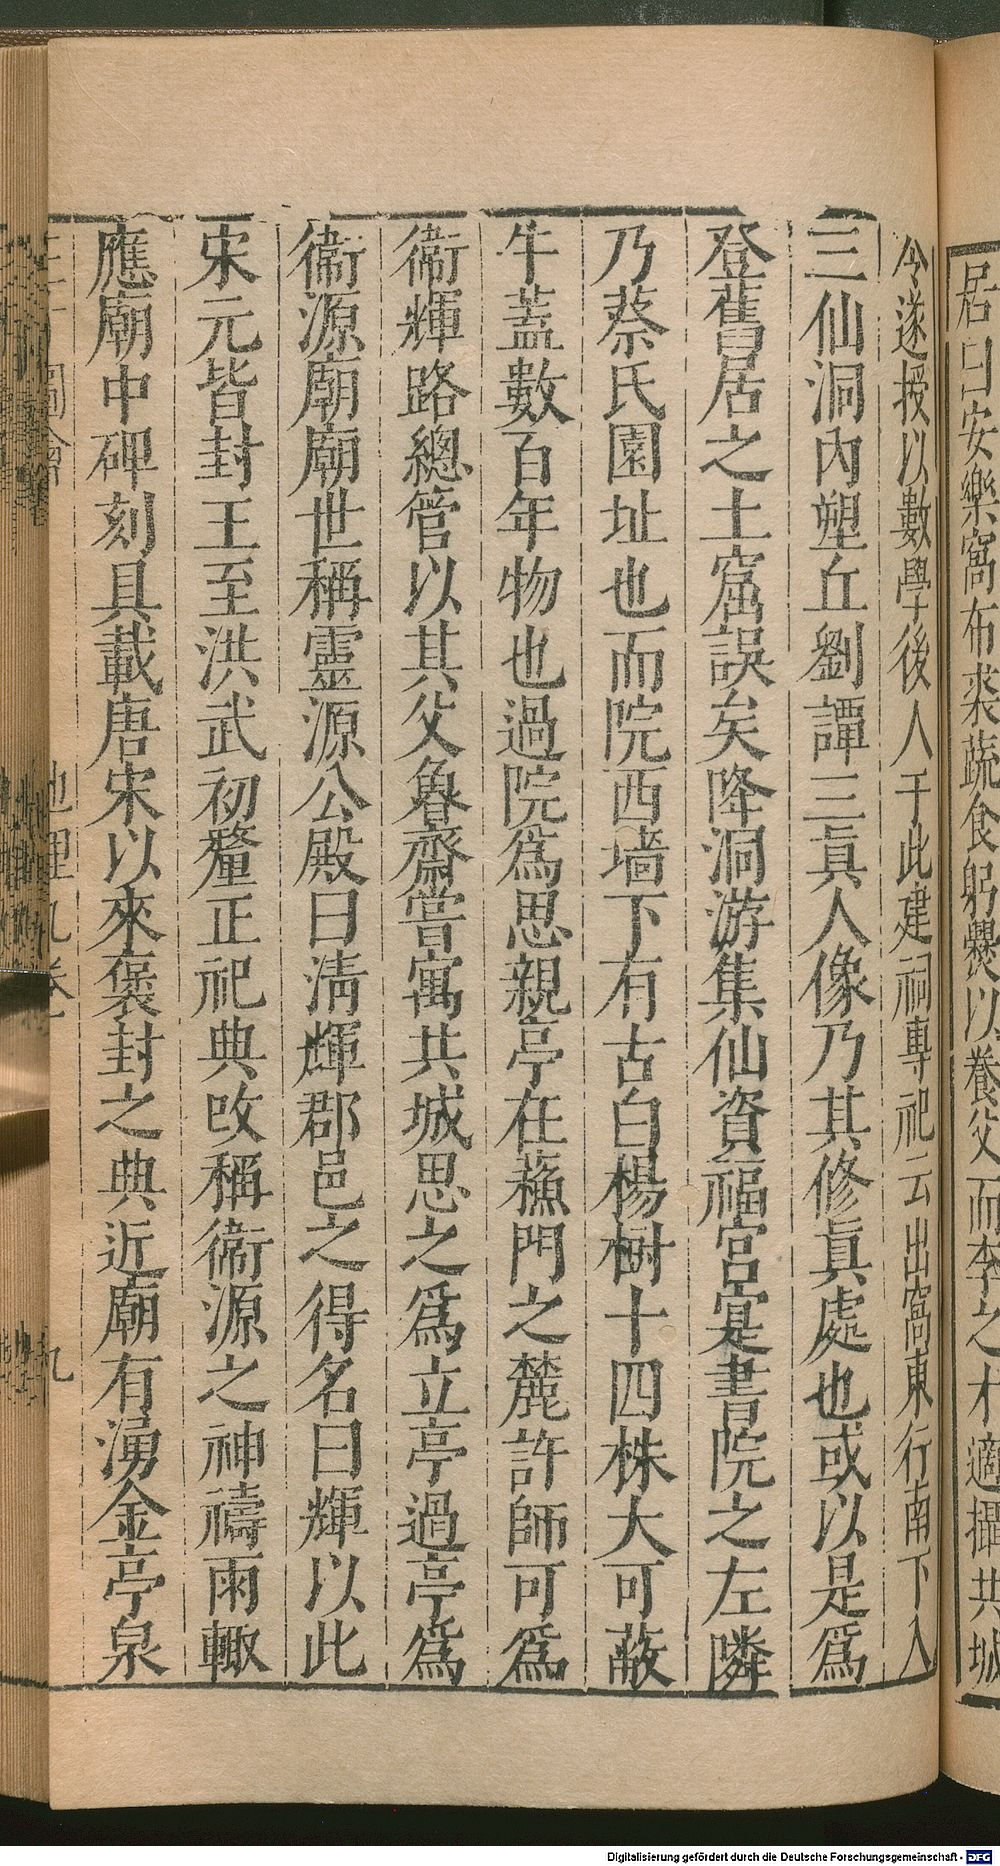 居曰安樂窩布裘蔬食躬㸑以養父而李之才適攝共城
令遂授以數學後人于此建祠專祀云出窩東行南下入
三仙洞內塑丘劉譚三眞人像乃其修眞處也或以是爲
登舊居之土窟誤矣降洞游集仙資福宮寔書院之左隣
乃蔡氏園址也而院西墻下有古白楊樹十四株大可蔽
牛蓋數百年物也過院爲思親亭在蘓門之麓許師可爲
衞輝路總管以其父魯齋嘗寓共城思之爲立亭過亭爲
衞源廟廟世稱靈源公殿曰淸輝郡邑之得名曰輝以此
宋元皆封王至洪武初釐正祀典改稱衞源之神禱雨輙
應廟中碑刻具載唐宋以來褒封之典近廟有湧金亭泉
圖會
地理九卷
九
Digitalisierung gefördert durch die Deutsche Forschungsgemeinschaft - DFG